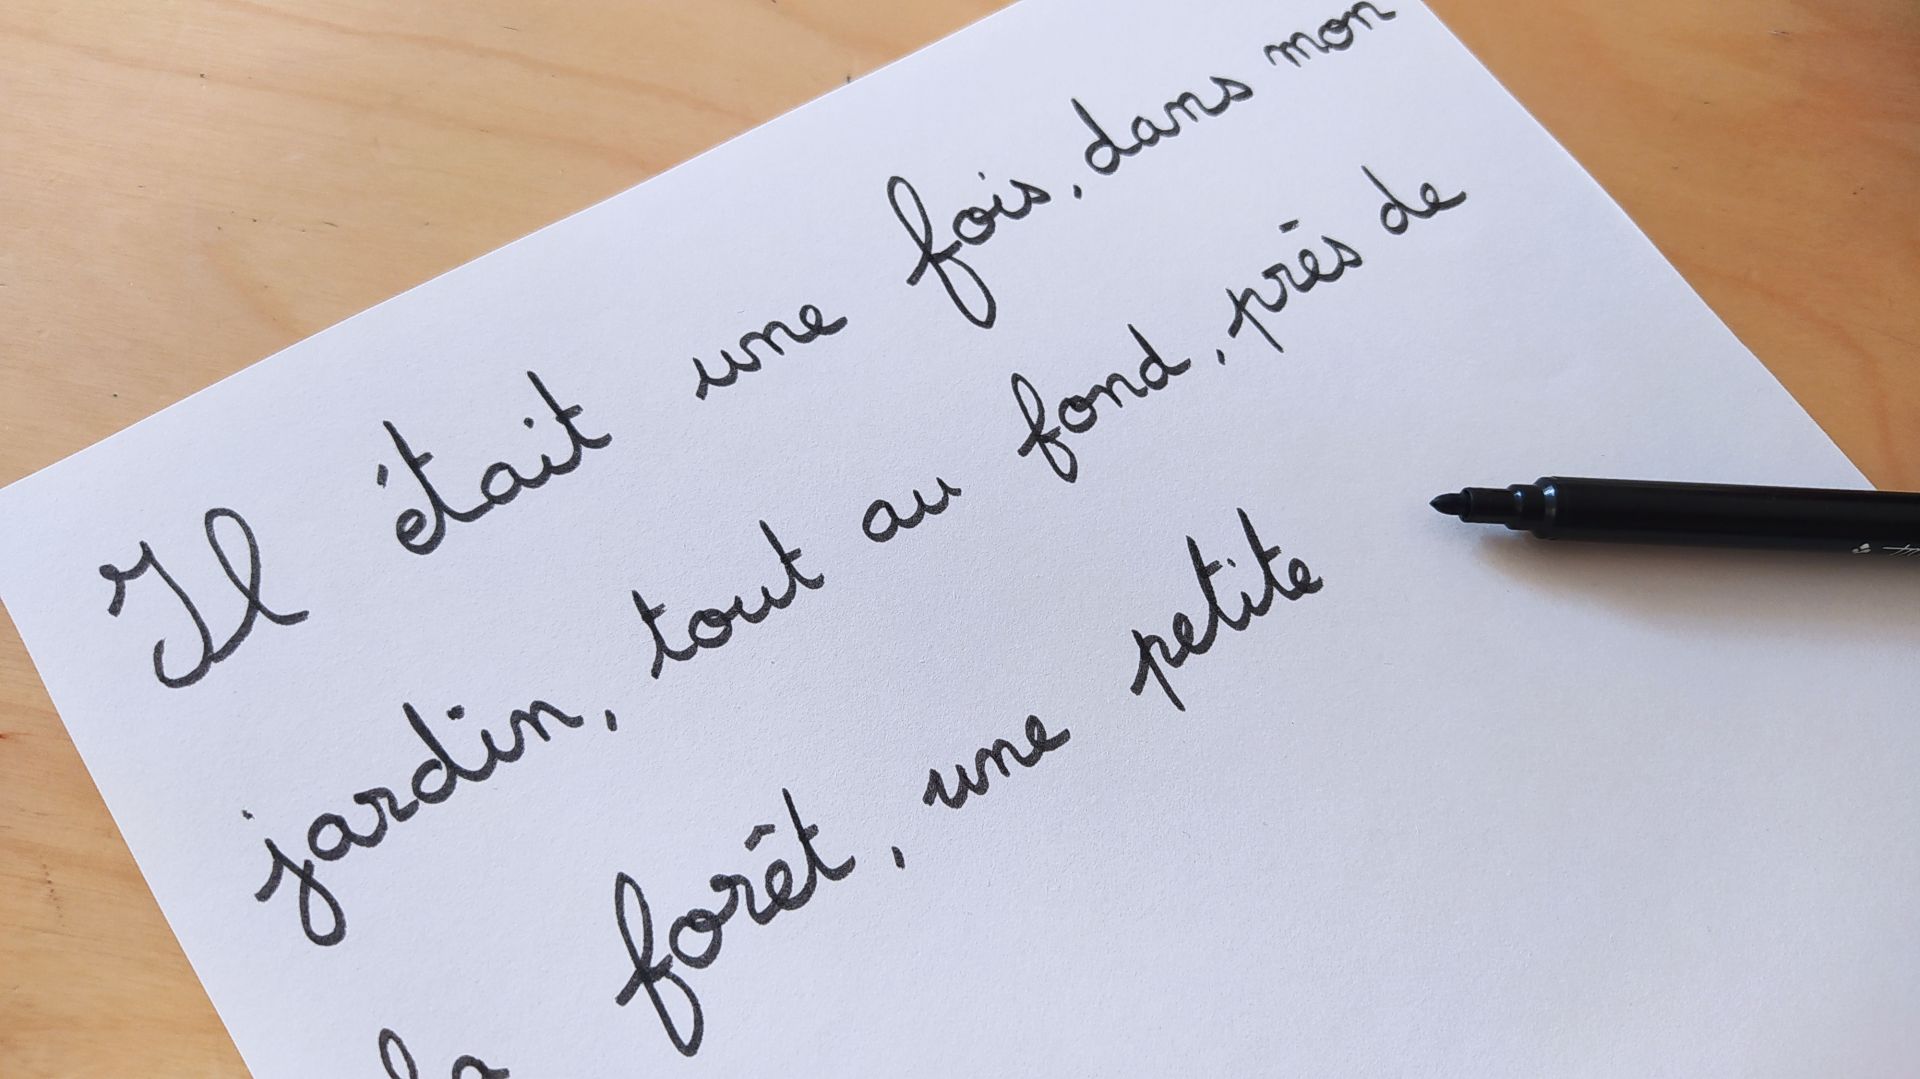 Il était une fois, dans mon
jardin, tout au fond, près de
la forêt, une petite